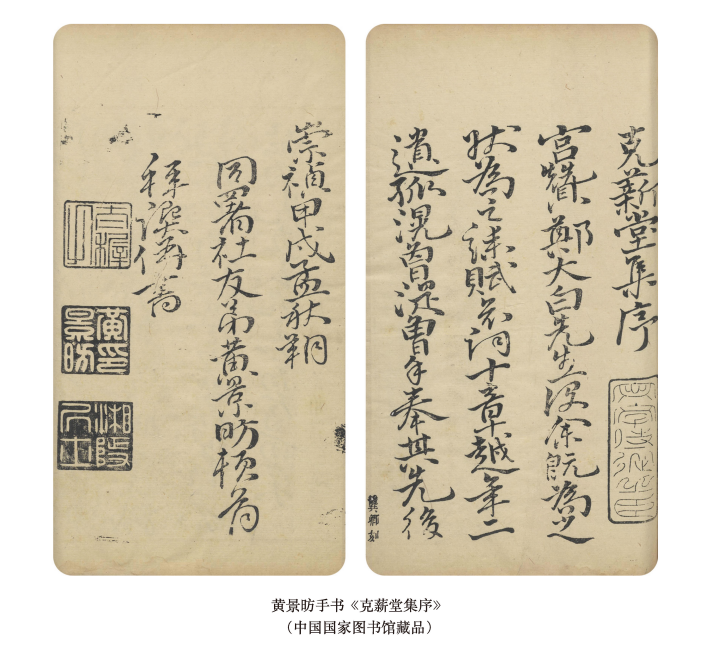 克薪堂集序
宫贊鄭大白先生没余既為之
状為之誄賦哀词十章越年二
遺孤滉曾曾手奉其先後
崇禎甲戌孟秋朔
同署社友弟黄景昉頓首
拜譔并書
黄景昉印
黄景昉手书《克薪堂集序》
（中国国家图书馆藏品）